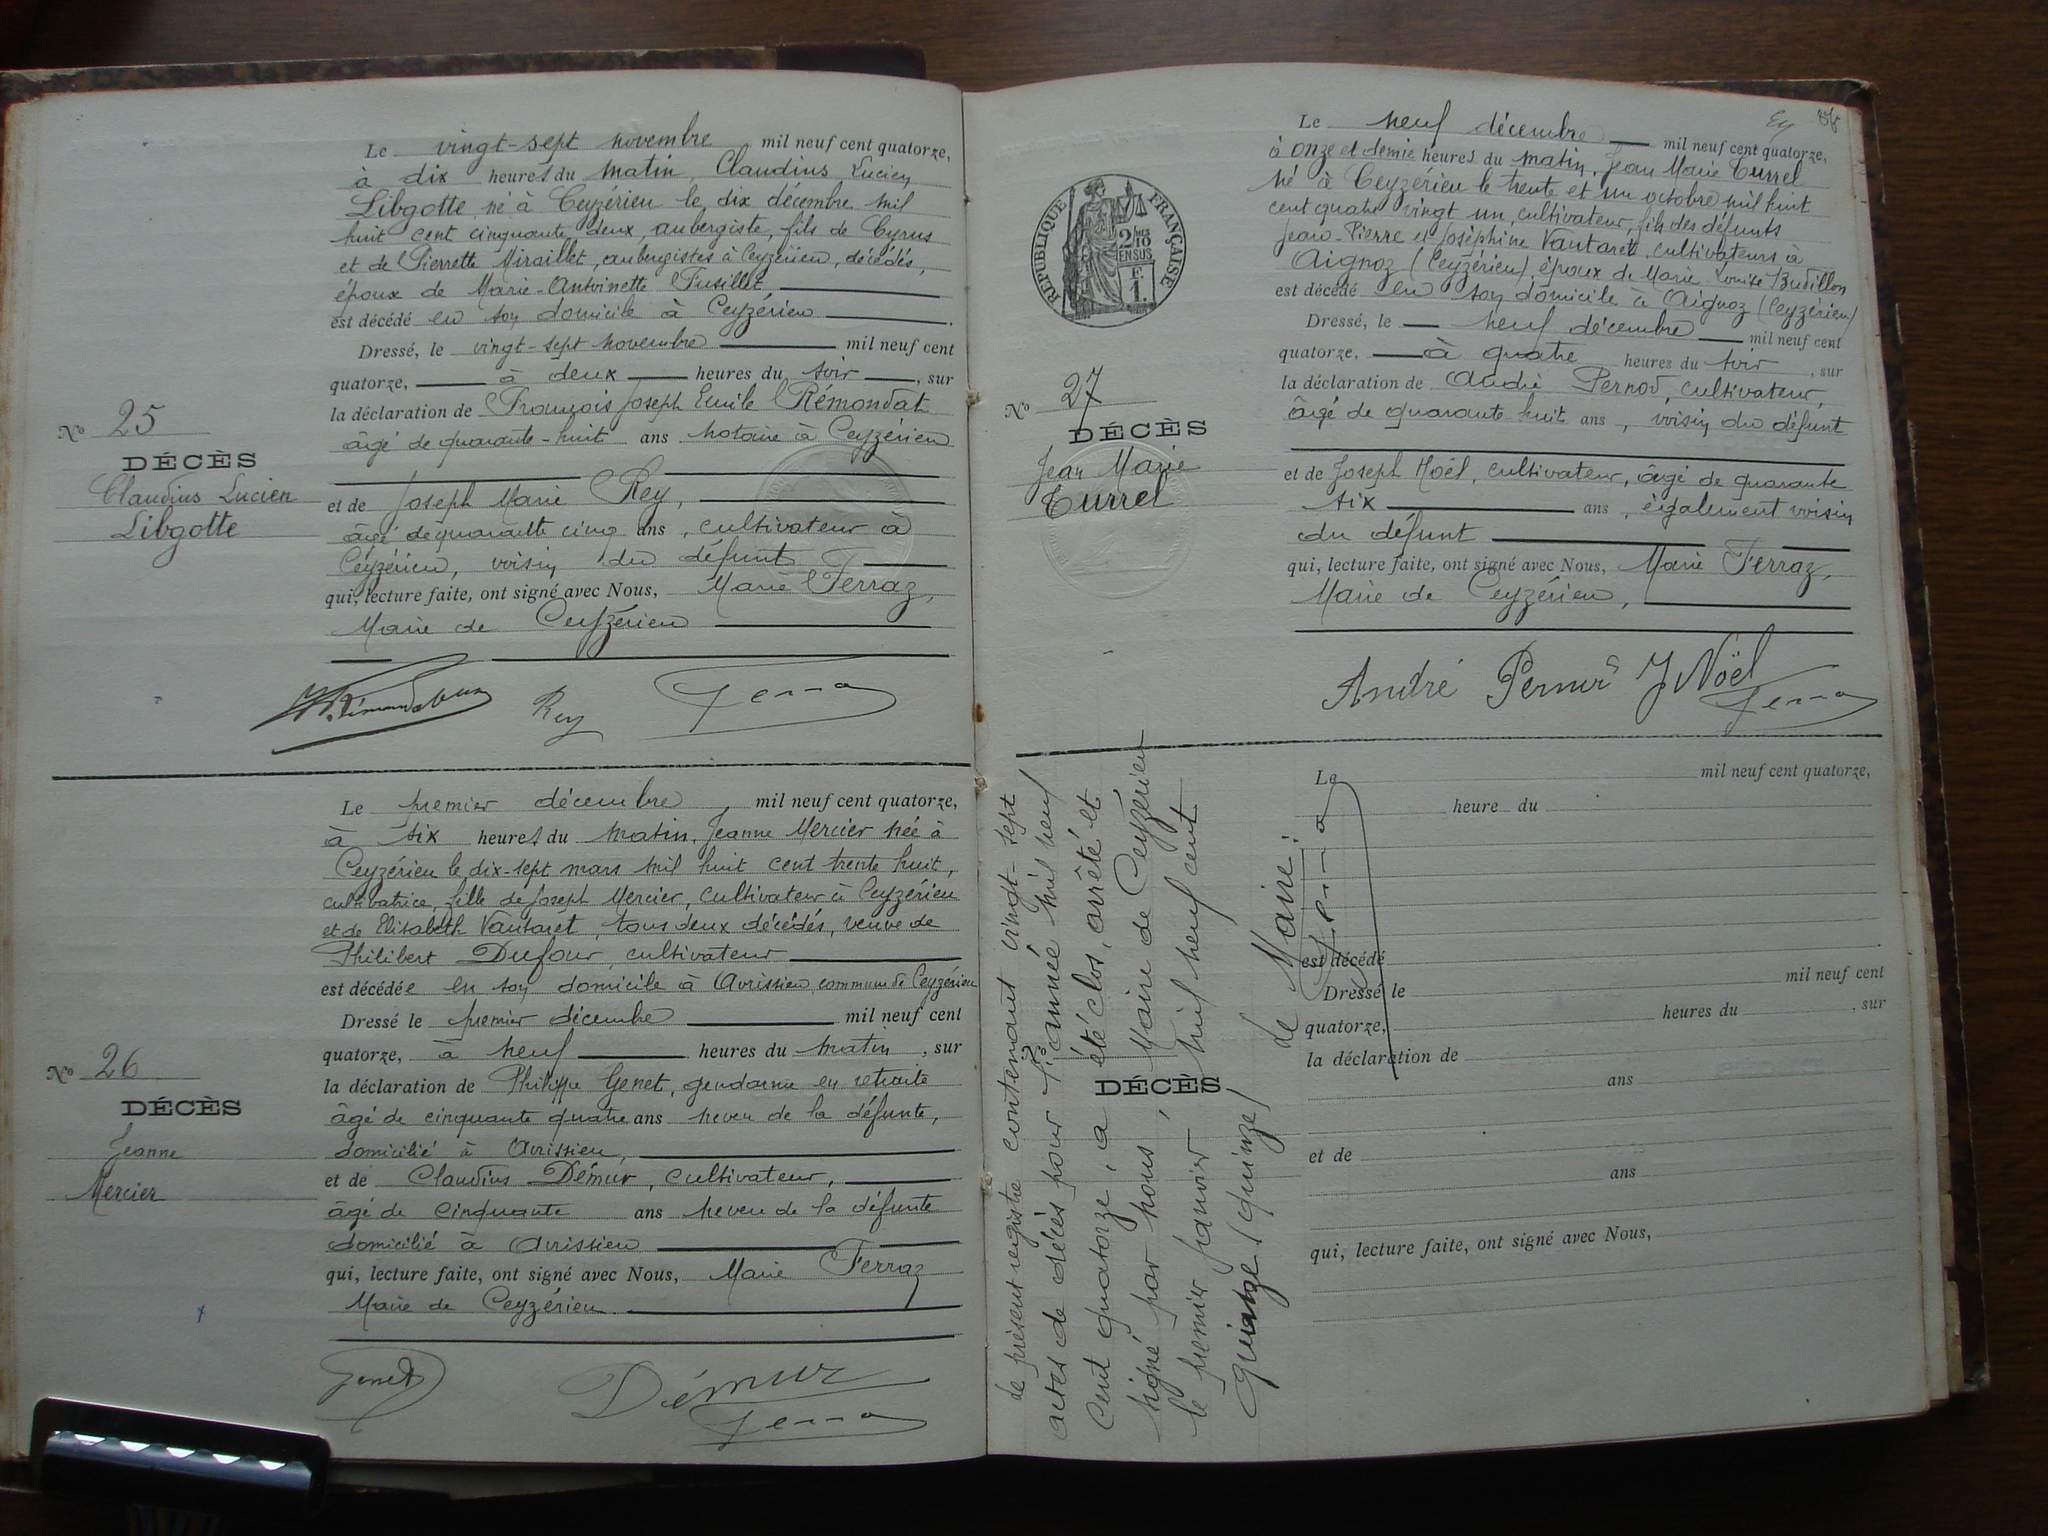 Le vingt-sept novembre mil neuf cent quatorze,
à dix heures du matin, Claudius Lucien
Libgotte, né à Ceyzérieu le dix décembre mil
huit cent cinquante deux, aubergiste, fils de Cyrus
et de Pierrette Miraillet, aubergistes à Ceyzérieu, décédés,
époux de Marie-Antoinette Fusillet
est décédé en son domicile à Ceyzérieu
Dressé, le vingt-sept novembre mil neuf cent
quatorze, à deux heures du soir, sur
la déclaration de François Joseph Emile Rémondat
âgé de quarante-huit ans notaire à Ceyzérieu
et de Joseph Marie Rey,
âgé de quarante cinq ans, cultivateur à
Ceyzérieu, voisin du défunt
qui, lecture faite, ont signé avec Nous, Marie Ferraz,
Maire de Ceyzérieu
No 25
DÉCÈS
Claudius Lucien
Libgotte
Rey Ferraz
Le premier décembre, mil neuf cent quatorze,
à six heures du matin, Jeanne Mercier née à
Ceyzérieu le dix-sept mars mil huit cent trente huit,
cultivatrice, fille de Joseph Mercier, cultivateur à Ceyzérieu
et de Elisabeth Vautaret, tous deux décédés, veuve de
Philibert Dufour, cultivateur
est décédée en son domicile à Avrissieu, commune de Ceyzérieu
Dressé le premier décembre mil neuf cent
quatorze, à neuf heures du matin, sur
la déclaration de Philippe Genet, gendarme en retraite
âgé de cinquante quatre ans neveu de la défunte,
domicilié à Avrissieu,
et de Claudius Démur, cultivateur,
âgé de cinquante ans neveu de la défunte
domicilié à Avrissieu
qui, lecture faite, ont signé avec Nous, Marie Ferraz
Maire de Ceyzérieu.
No 26
DÉCÈS
Jeanne
Mercier
Genet Démur
Ferraz
RÉPUBLIQUE FRANÇAISE
2/10
EN SUS
F.
1.
Le neuf décembre mil neuf cent quatorze,
à onze et demie heures du matin, Jean Marie Turrel
né à Ceyzérieu le trente et un octobre mil huit
cent quatre vingt un, cultivateur, fils des défunts
Jean-Pierre et Joséphine Vautaret, cultivateurs à
Aignoz (Ceyzérieu), époux de Marie Louise Budillon
est décédé en son domicile à Aignoz (Ceyzérieu)
Dressé, le neuf décembre mil neuf cent
quatorze, à quatre heures du soir, sur
la déclaration de André Pernod, cultivateur,
âgé de quarante huit ans, voisin du défunt
et de Joseph Noël, cultivateur, âgé de quarante
six ans, également voisin
du défunt
qui, lecture faite, ont signé avec Nous, Marie Ferraz,
Maire de Ceyzérieu,
No 27
DÉCÈS
Jean Marie
Turrel
André J Noël
Ferraz
Le présent registre contenant vingt-sept
actes de décès pour l'année mil neuf
cent quatorze, a été clos, arrêté et
signé par nous, Maire de Ceyzérieu
le premier janvier mil neuf cent
quinze /quinze/
Le Maire:
Ferraz
Le mil neuf cent quatorze,
heure du
est décédé
Dressé le mil neuf cent
quatorze, heures du , sur
la déclaration de
ans
No
DÉCÈS
et de
ans
qui, lecture faite, ont signé avec Nous,